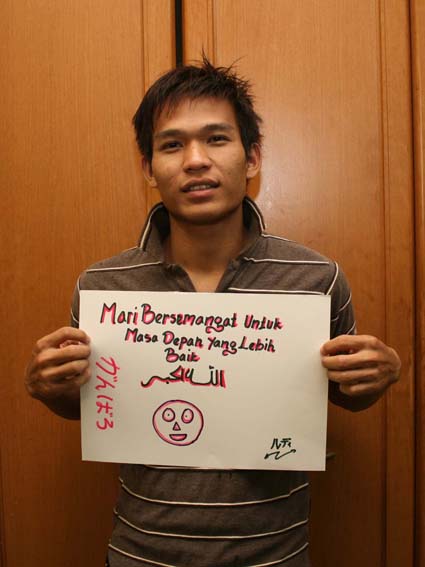 Mari Bersemangat Untuk
Masa Depan Yang Lebih
Baik
الله اكبر
がんばろ
ルディ